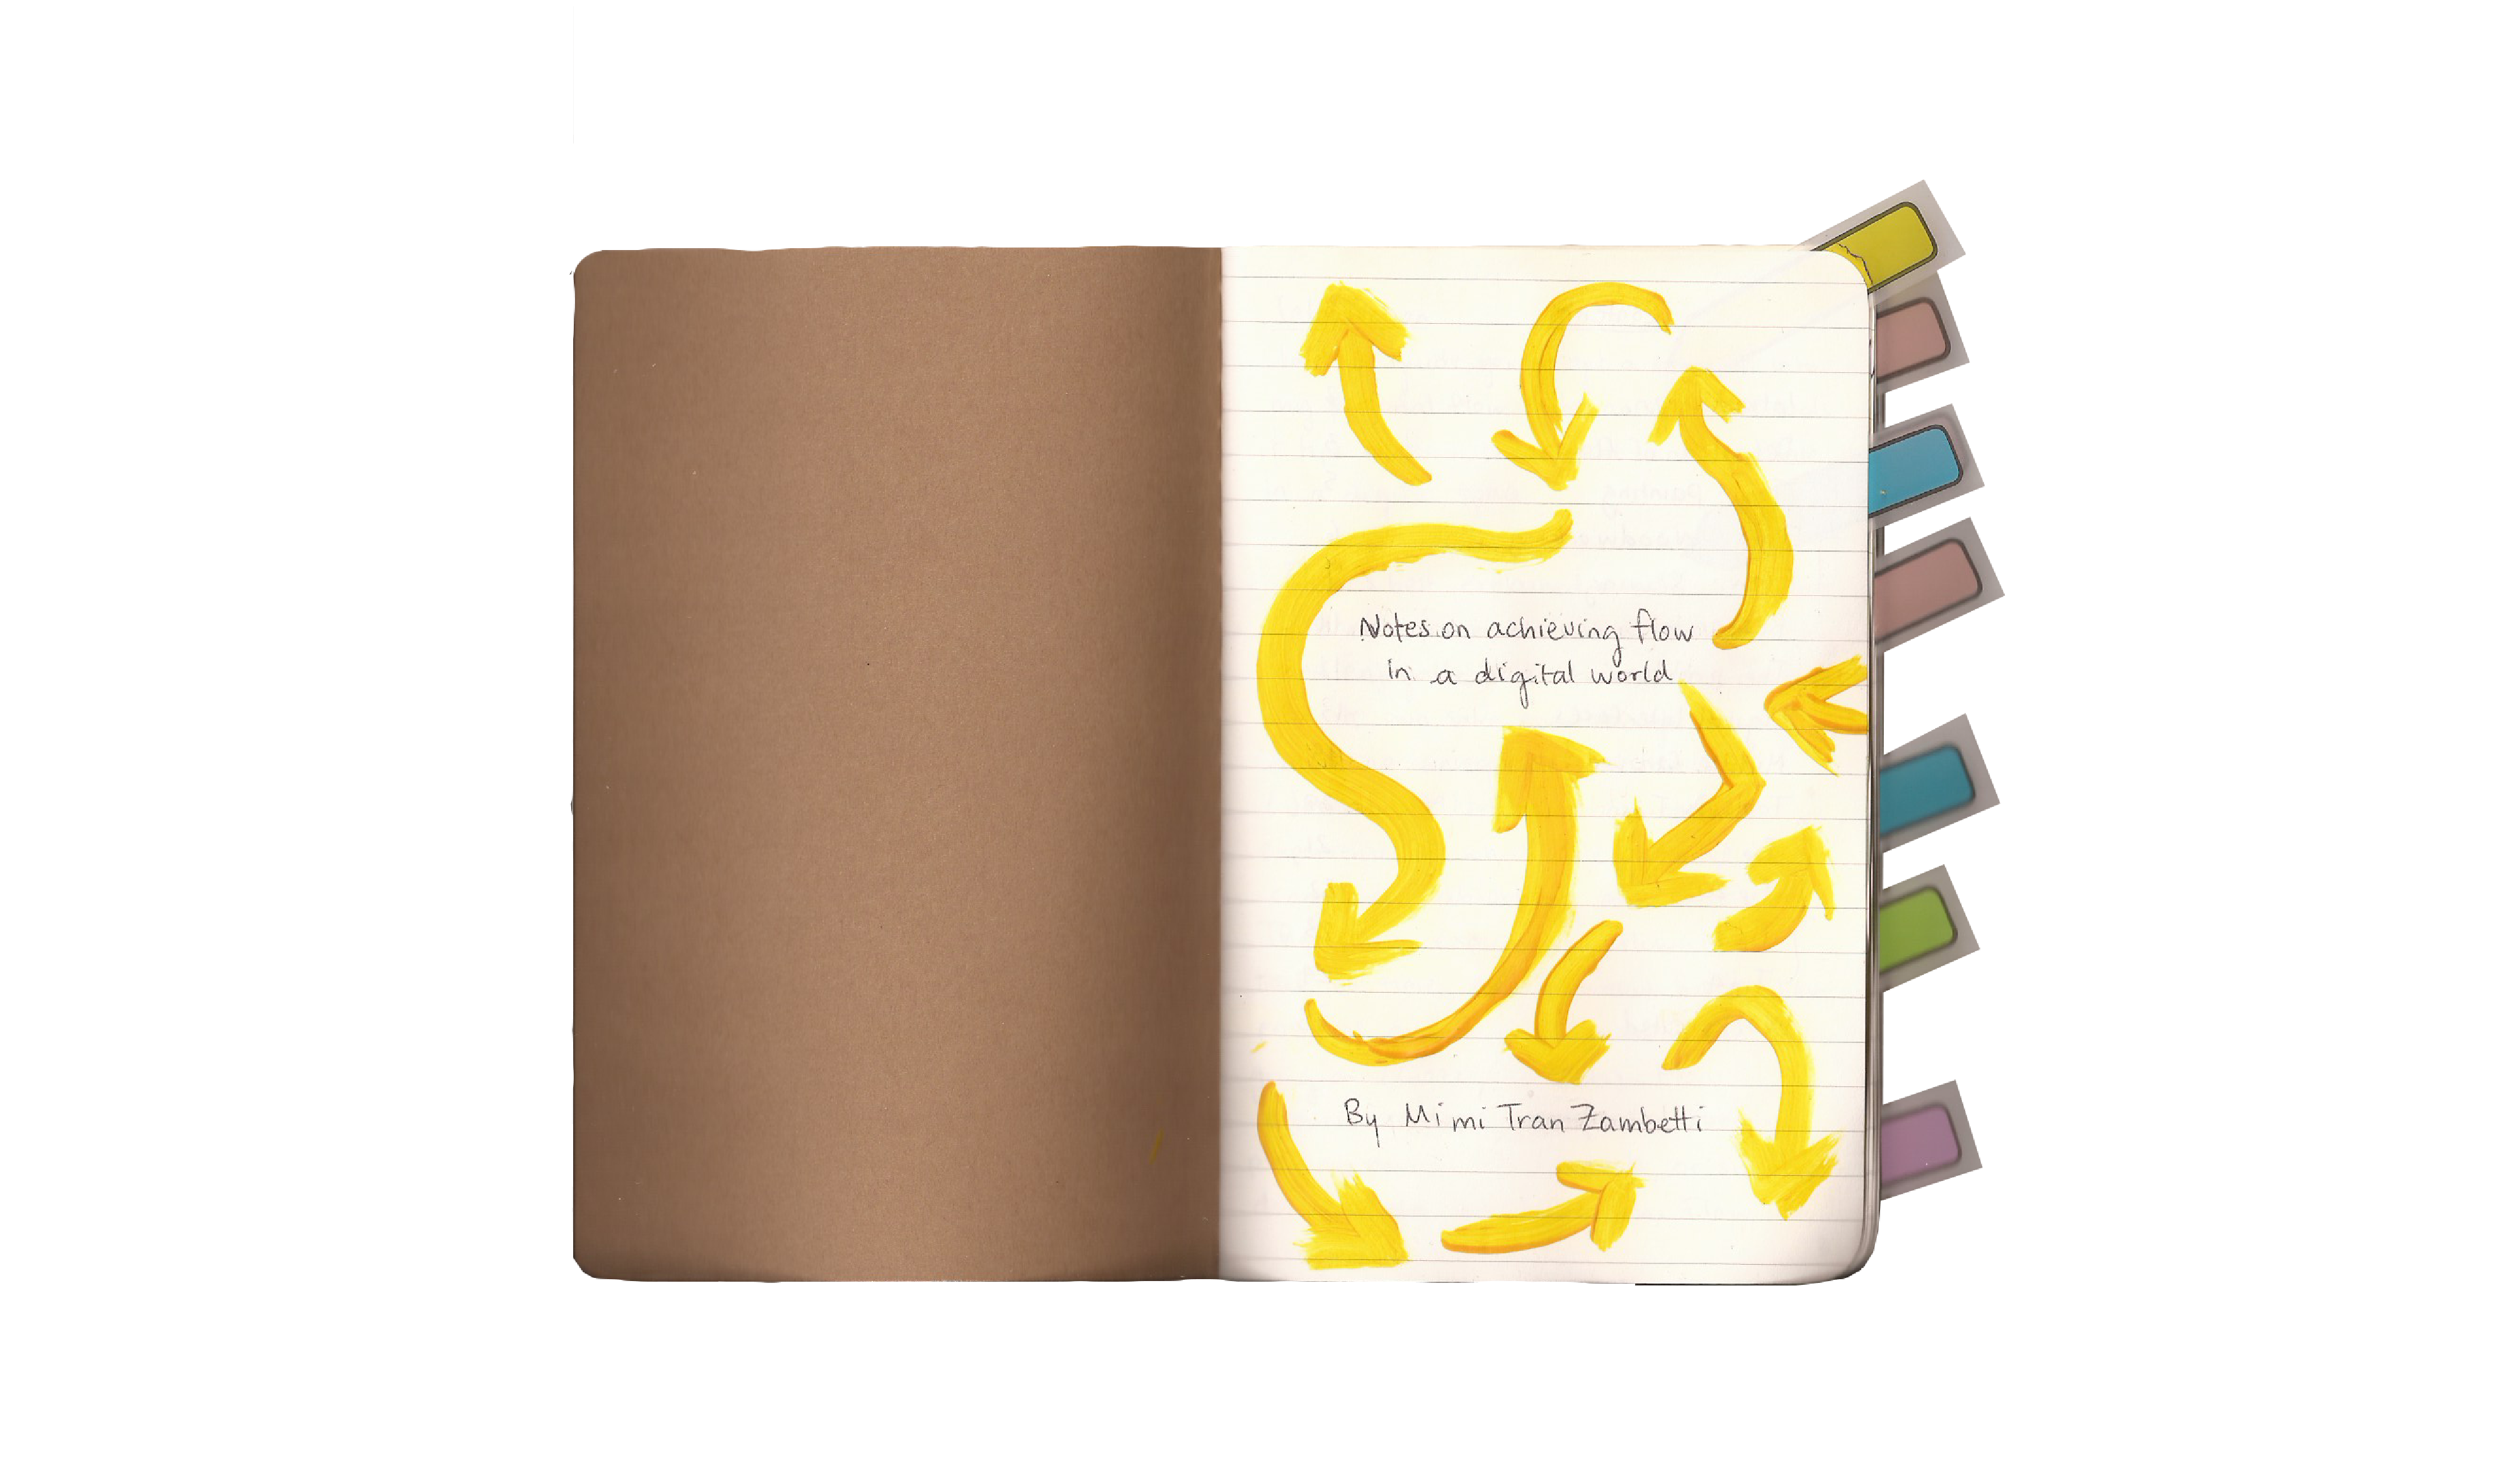 Notes on achieving flow
in a digital world
By Mimi Tran Zambetti